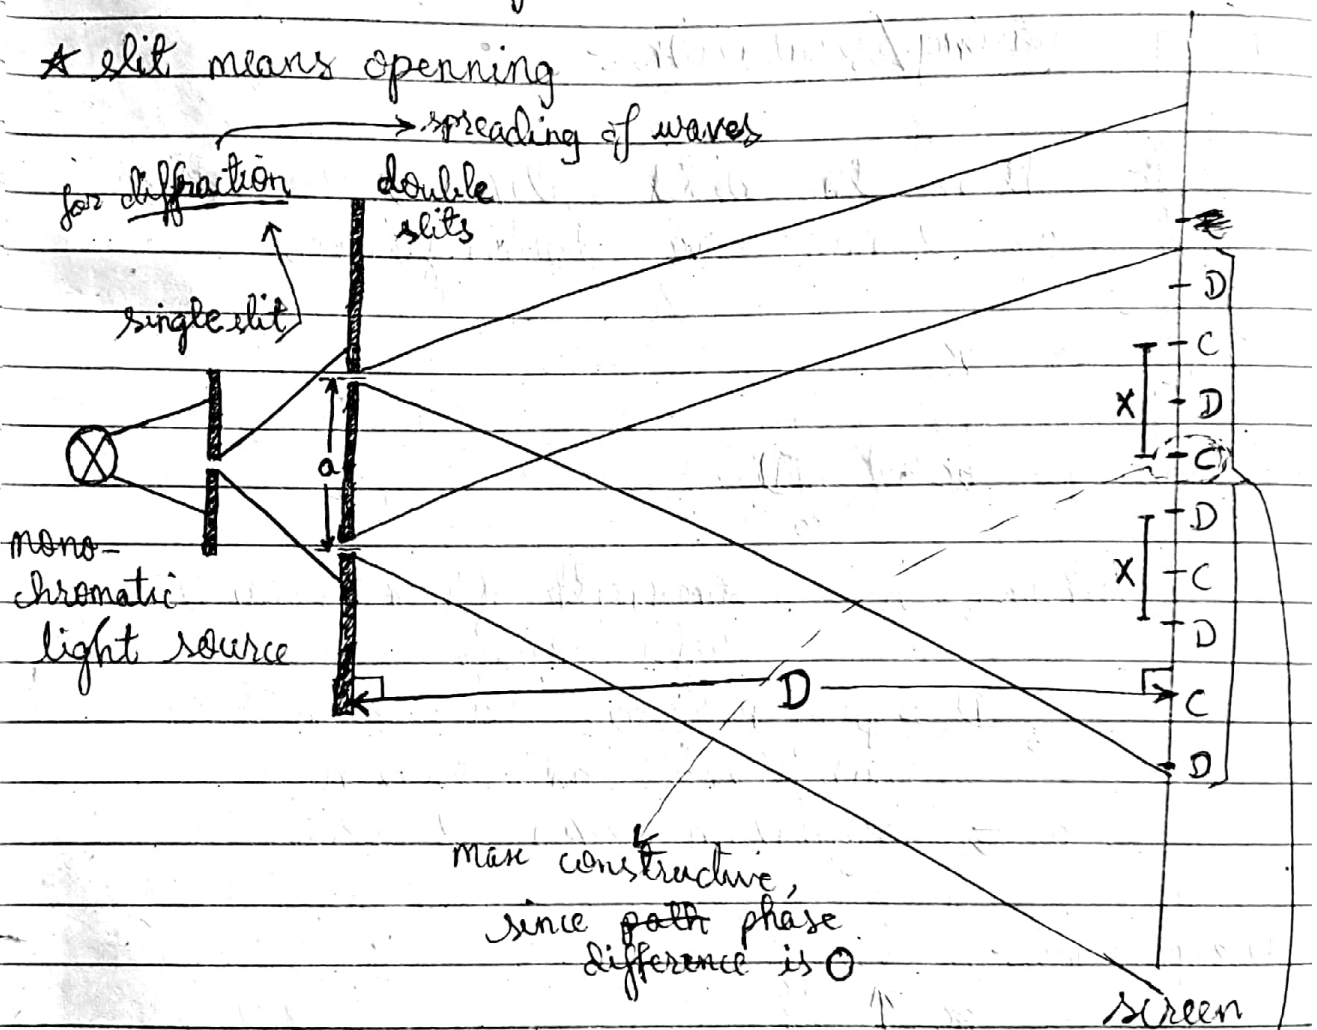 ★ slit means openning
spreading of waves
for diffraction
double
slits
single slit
D
C
X
D
C
a
D
X
C
D
mono-
chromatic
light source
D
C
D
max constructive,
since path phase
difference is 0
screen